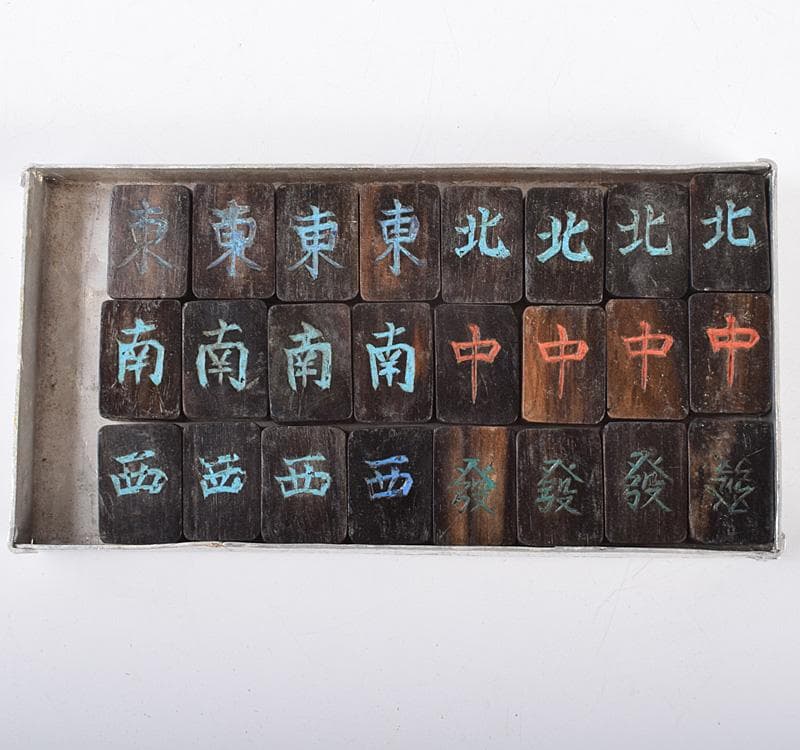 東東東東北北北北
南南南南中中中中
西西西西發發發發